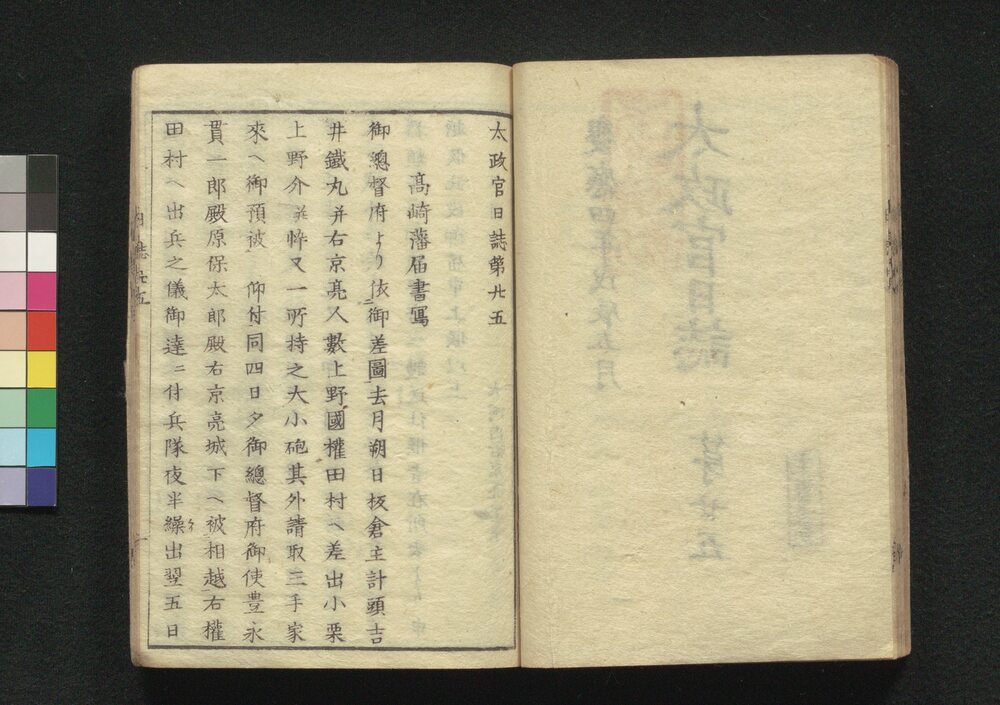 太政官日誌第廿五
高崎藩届書寫
御總督府ゟ依御差圖去月朔日板倉主計頭吉
井鐵丸并右京亮人數上野國權田村ヘ差出小栗
上野介并悴又一所持之大小砲其外請取三手家
來ヘ御預被 仰付同四日夕御總督府御使豊永
貫一郎殿原保太郎殿右京亮城下ヘ被相越右權
田村ヘ出兵之儀御達ニ付兵隊夜半繰出翌五日